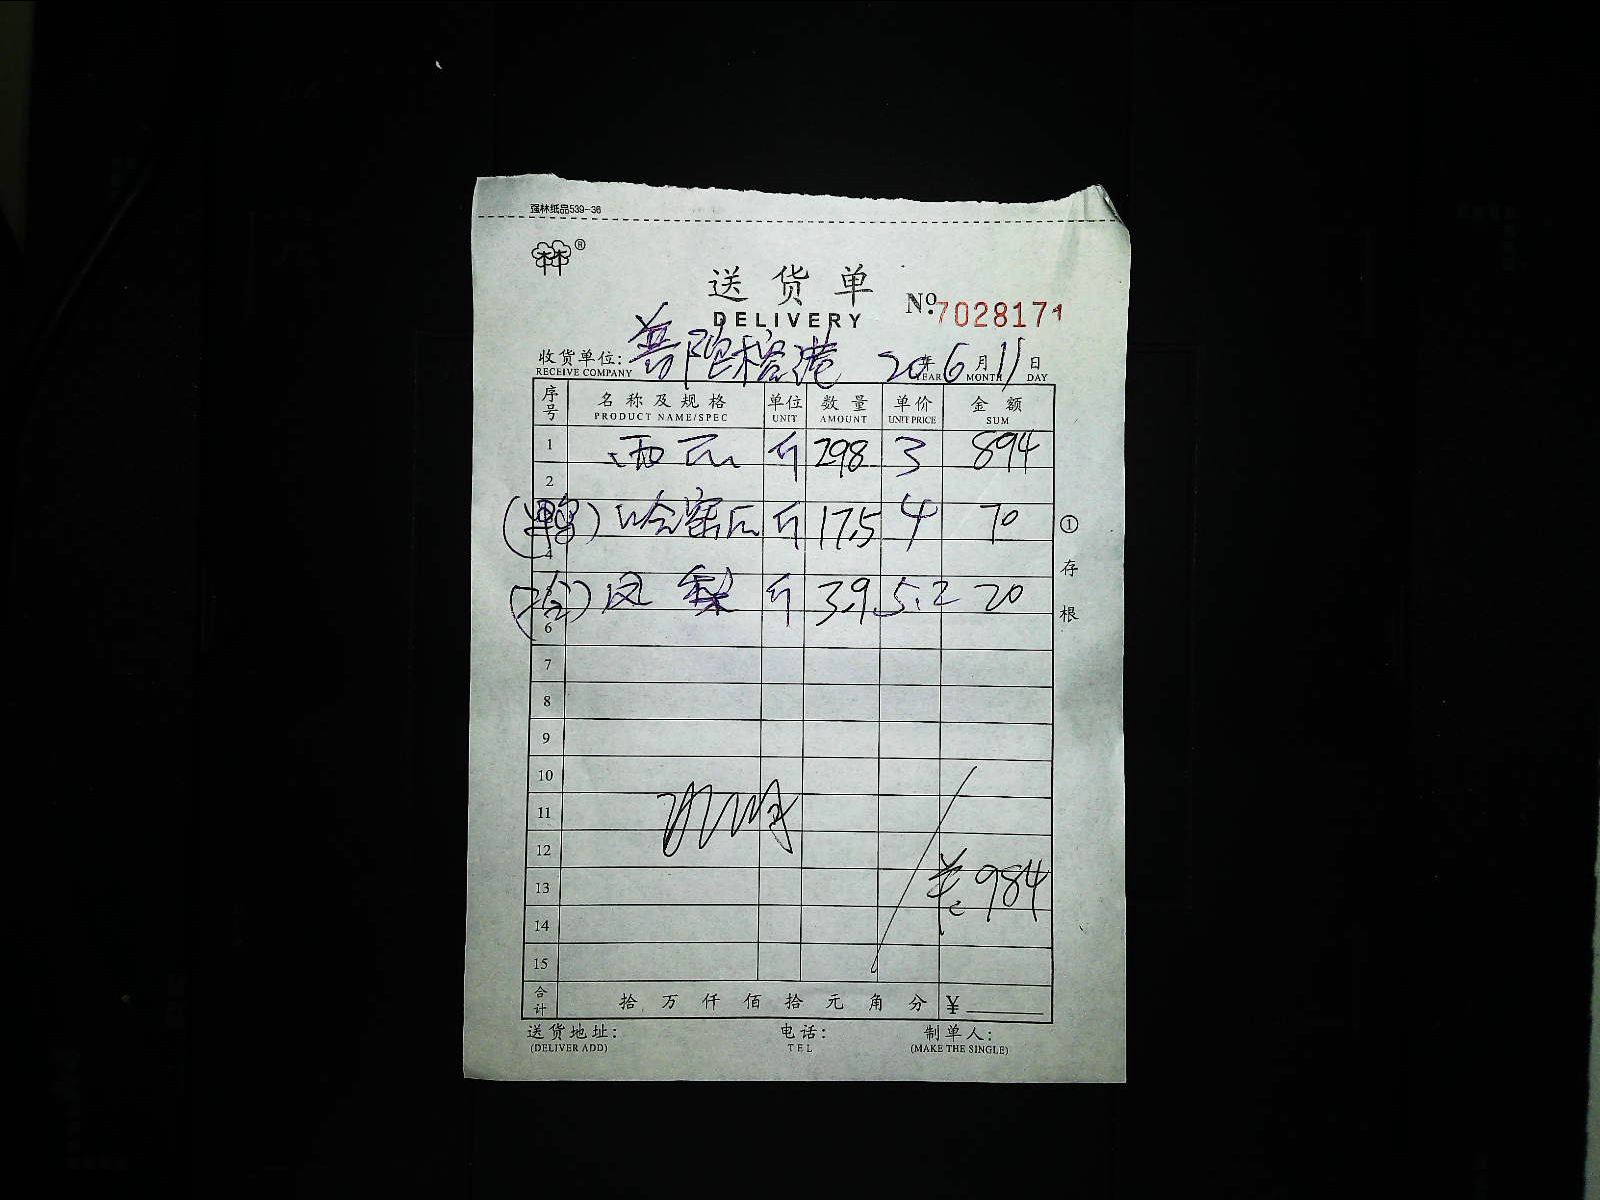 强林纸品539-36
®
送货单
DELIVERY
No. 7028171
收货单位: 普陀榕港 20年6月11日
RECEIVE COMPANY YEAR MONTH DAY
序号 名称及规格 单位 数量 单价 金额
PRODUCT NAME/SPEC UNIT AMOUNT UNIT PRICE SUM
1 西瓜 斤 298 3 894
2
哈密瓜 斤 17.5 4 70
4
凤梨 斤 3.9 5.2 20
6
7
8
9
10
11
12
13 ¥:984
14
15
合计 拾万仟佰拾元角分 ¥
送货地址: 电话: 制单人:
(DELIVER ADD) TEL (MAKE THE SINGLE)
①存根